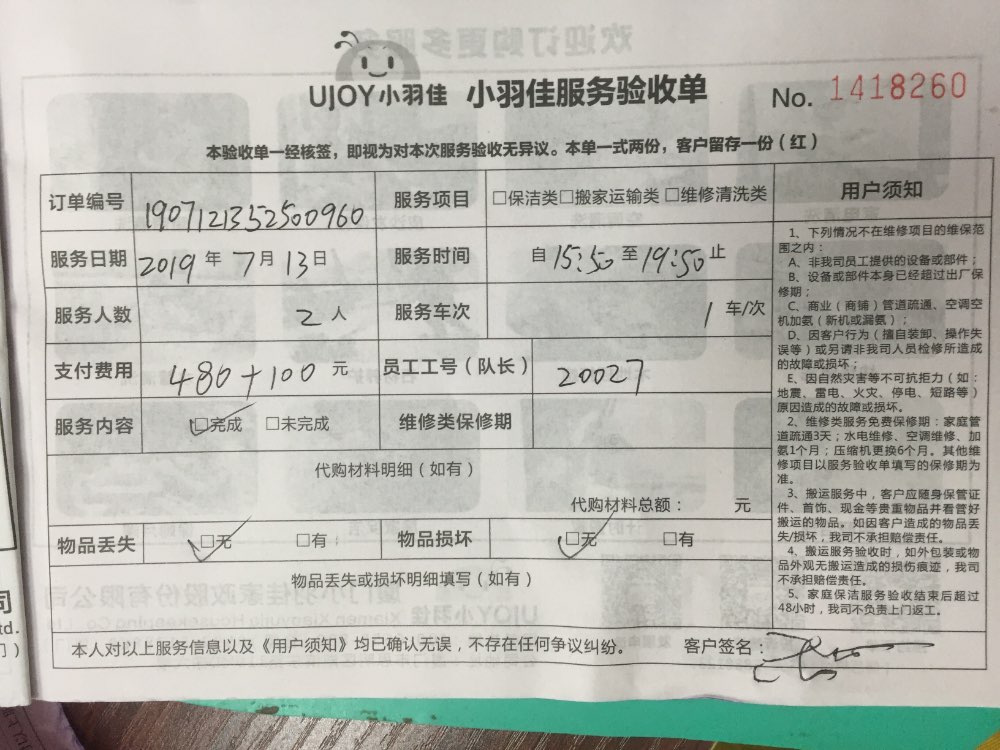 UJOY小羽佳 小羽佳服务验收单 No. 1418260
本验收单一经核签，即视为对本次服务验收无异议。本单一式两份，客户留存一份（红）
订单编号 1907121352500960 服务项目 □保洁类□搬家运输类 □维修清洗类
服务日期 2019 年 7 月 13 日 服务时间 自 15:50 至 19:50 止
服务人数 2 人 服务车次 1 车/次
支付费用 480+100 元 员工工号（队长） 20027
服务内容 □完成 □未完成 维修类保修期
代购材料明细（如有）
代购材料总额： 元
物品丢失 □无 □有； 物品损坏 □无 □有
物品丢失或损坏明细填写（如有）
本人对以上服务信息以及《用户须知》均已确认无误，不存在任何争议纠纷。 客户签名：
用户须知
1、下列情况不在维修项目的维保范
围之内：
A、非我司员工提供的设备或部件；
B、设备或部件本身已经超过出厂保
修期；
C、商业（商铺）管道疏通、空调空
机加氨（新机或漏氨）；
D、因客户行为（擅自装卸、操作失
误等）或另请非我司人员检修所造成
的故障或损坏；
E、因自然灾害等不可抗拒力（如：
地震、雷电、火灾、停电、短路等）
原因造成的故障或损坏。
2、维修类服务免费保修期：家庭管
道疏通3天；水电维修、空调维修、加
氨1个月；压缩机更换6个月。其他维
修项目以服务验收单填写的保修期为
准。
3、搬运服务中，客户应随身保管证
件、首饰、现金等贵重物品并看管好
搬运的物品。如因客户造成的物品丢
失/损坏，我司不承担赔偿责任。
4、搬运服务验收时，如外包装或物
品外观无搬运造成的损伤痕迹，我司
不承担赔偿责任。
5、家庭保洁服务验收结束后超过
48小时，我司不负责上门返工。
司
td.
门）